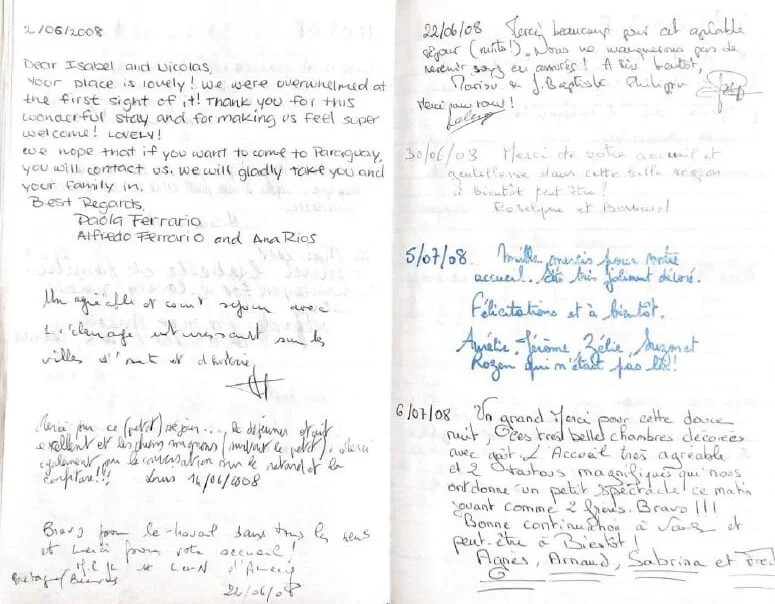 2/06/2008
Dear Isabel and Nicolas,
Your place is lovely! We were overwhelmed at
the first sight of it! Thank you for this
wonderful stay and for making us feel super
welcome! LOVELY!
We hope that if you want to come to Paraguay,
you will contact us. We will gladly take you and
your family in.
Best Regards,
Paola Ferrario
Alfredo Ferrario and Ana Rios
Un agréable et court séjour avec
intéressant sur les
villes d'art et d'histoire
Merci pour ce (petit) séjour... Le déjeuner était
excellent et les chiens mignons (surtout le petit). Merci
également pour la conversation sur le retard et la
confiture!!! 14/06/2008
Bravo pour le travail dans tous les sens
et merci pour votre accueil!
22/06/08
22/06/08 Merci beaucoup pour cet agréable
séjour (nuité!). Nous ne manquerons pas de
revenir soyez en assurés! A bientôt,
J. Baptiste Philippin
Merci pour tout!
30/06/08 Merci de votre accueil et
gentillesse dans cette belle région
à Bientôt peut être!
Roselyne et Bernard
5/07/08. Mille mercis pour votre
accueil... très joliment décoré.
Félicitations et à bientôt.
Aurélie, Jérôme, Zélie, Suzon et
Rozen qui n'était pas là!
6/07/08 Un grand Merci pour cette douce
nuit, Des très belles chambres décorées
avec goût. L'Accueil très agréable
et 2 toutous magnifiques qui nous
ont donné un petit spectacle ce matin
jouant comme 2 frères. Bravo!!!
Bonne continuation à Vous et
peut-être à Bientôt!
Agnès, Arnaud, Sabrina et Fred